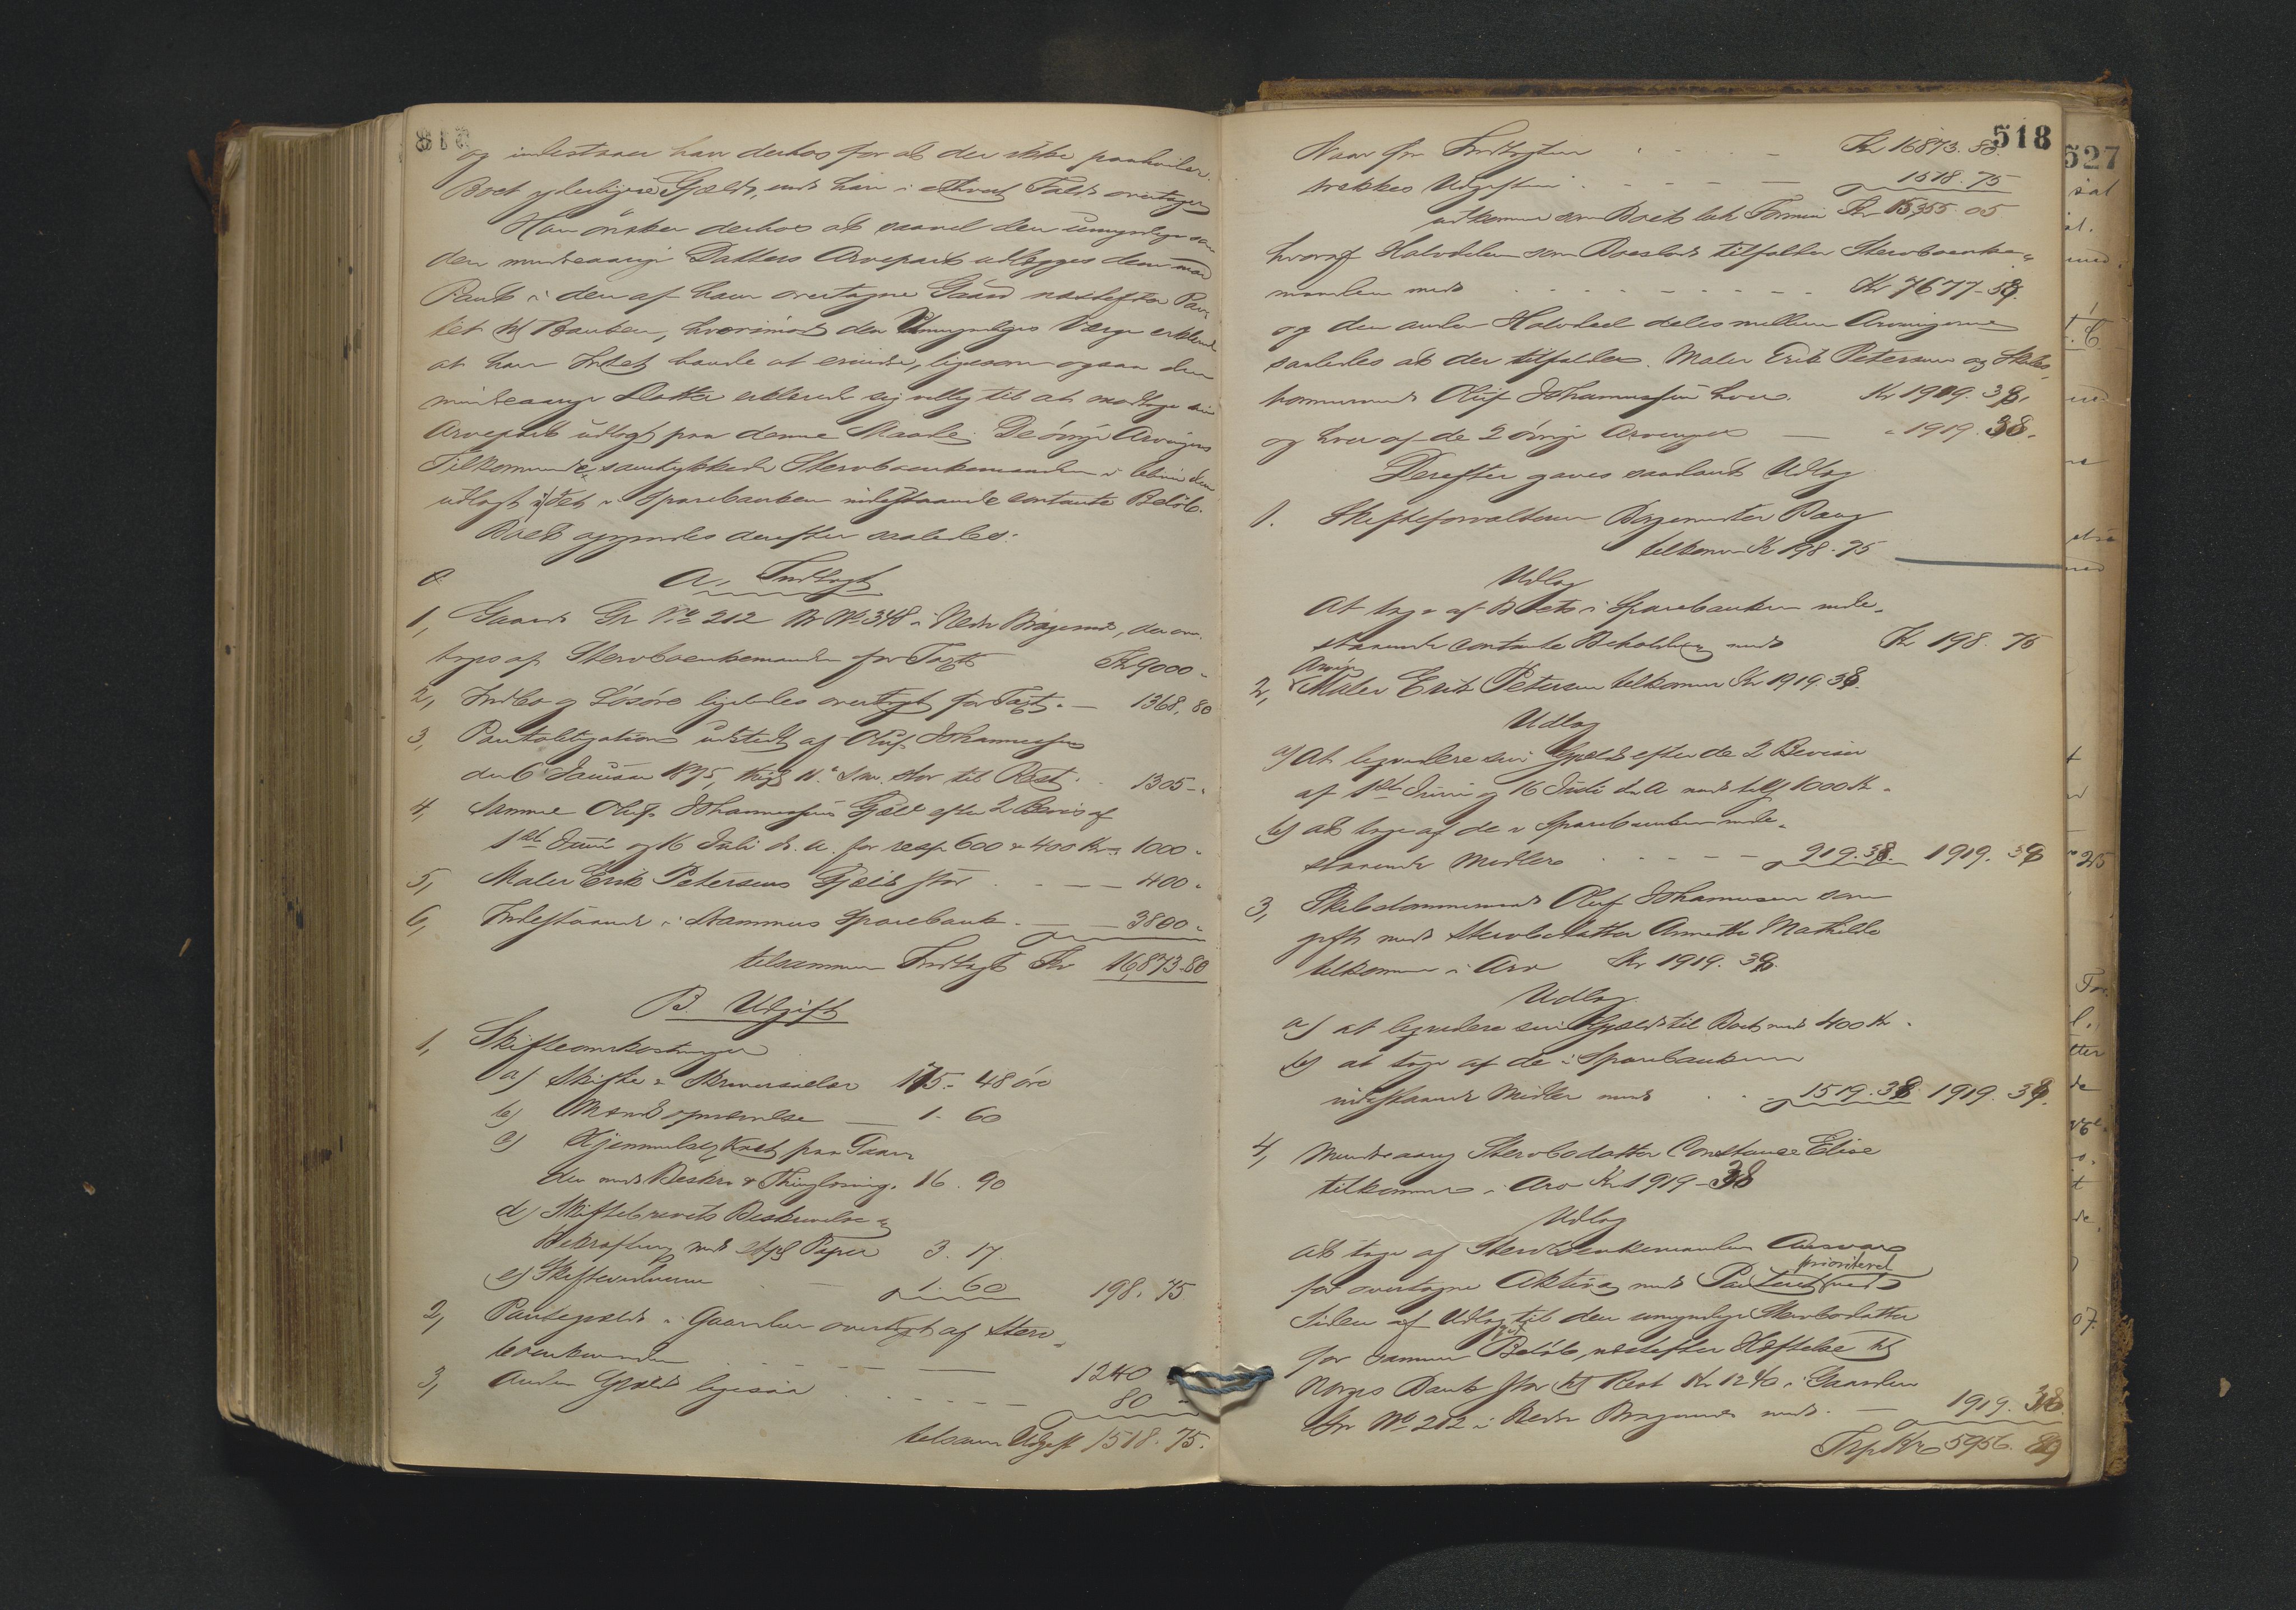 og indestaaer han derhos for at der ikke paahviler
Boet yderligere Gjæld, end han i ethvert Fald overtager
Han ønsker derhos at saavel den umyndige som
den mindreaarige Datters Arvepart udlægges dem mod
Pant i den af ham overtagne Gaard næstefter Pan-
tet til Banken, hvorimod den Umyndiges Værge erklærede
at han Intet havde at erindre, ligesom ogsaa den
mindreaarige Datter erklærede sig villig til at modtage sin
Arvepart udlagt paa denne Maade. De øvrige Arvingers
Tilkommende samtykkede Stervboenkemanden i blive dem
udlagt i det i Sparebanken indestaaende contante Beløb.
Boet opgjordes derefter saaledes:
A. Indtægt
1, Gaard Gr No 212 Br No 348 i Nedre Bragernes, der over-
toges af Stervboenkemanden for Taxt Kr 9000 -
2, Indbo og Løsøre ligeledes overtaget for Taxt. — 1368. 80
3, Pantobligation udstedt af Oluf Johannessen
den 6 Januar 1875, thgl. 11. s.m. stor til Rest . . 1305 -
4, Samme Oluf Johannessens Gjæld efter 2 Bevis af
1ste Juni og 16 Juli d. A. for resp. 600 & 400 Kr = 1000 -
5, Maler Erik Petersens Gjæld stor . . — — 400 -
6, Indestaaende i Drammens Sparebank . — — 3800 -
tilsammen Indtægt Kr 16,873.80
B. Udgift
1, Skifteomkostninger
a) Skifte & Skriversalær 175 - 48 øre
b) — 1. 60
c) Hjemmelsg. Kost paa Gaar-
den med Beskr. & Thinglæsning. 16. 90
d) Skiftebrevets Beskrivelse &
Bekræftelse med stpl. Papir 3. 17.
e) . — 1. 60 198. 75
2, Pantegjæld i Gaarden overtaget af Sterv-
boenkemanden . . — — 1240
3, Anden Gjæld ligesaa . . — — 80 -
tilsam. Udgift 1518. 75.
518
Naar fra Indtægten . . . — Kr 16873. 80.
trækkes Udgiften . . . — — 1518. 75
udkommer som Boets lute Formue Kr 15,355. 05
hvoraf Halvdelen som Boeslod tilfalder Stervboenke-
manden med . . . . . Kr 7677-58.
og den anden Halvdeel deles mellem Arvingerne
saaledes at der tilfalder Maler Erik Petersen og Skibs-
tømmermand Oluf Johannessen hver. Kr 1919. 38,
og hver af de 2 øvrige Arvinger — " 1919. 38.
Derefter gaves saadant Udlæg
1. Skifteforvalteren Borgermester Bang
tilkom Kr 198. 75
Udlæg
At tage af Boets i Sparebanken inde-
staaende contante Beholdning med Kr 198. 75
2, Arving Maler Erik Petersen tilkommer Kr 1919. 38.
Udlæg
a) At liqvidere sin Gjæld efter de 2 Beviser
af 1ste Juni og 16 Juli d. A. med tils. 1000 Kr.
b) at tage af de i Sparebanken inde-
staaende Midler . . — — 919. 38. 1919. 38
3, Skibstømmermand Oluf Johannessen som
gift med Stervbodatter Annette Mathilde
tilkommer i Arv Kr 1919. 38.
Udlæg
a) at liqvidere sin Gjæld til Boet med 400 Kr.
b) at tage af de i Sparebanken
indestaaende Midler med . . 1519. 38. 1919. 38.
4, Mindreaarig Stervbodatter Constance Elise
tilkommer i Arv Kr 1919-38
Udlæg
At tage af Stervboenkemanden Ansvar
for overtagne Aktiva med Panteret prioriteret ved
Siden af Udlæg til den umyndige Stervbodatter
for samme Beløb, næstefter Hæftelse til
Norges Bank stor til Rest Kr 1240 i Gaarden
Gr No 212 i Nedre Bragernes med . — 1919. 38.
Trsp. Kr 5956. 89
527